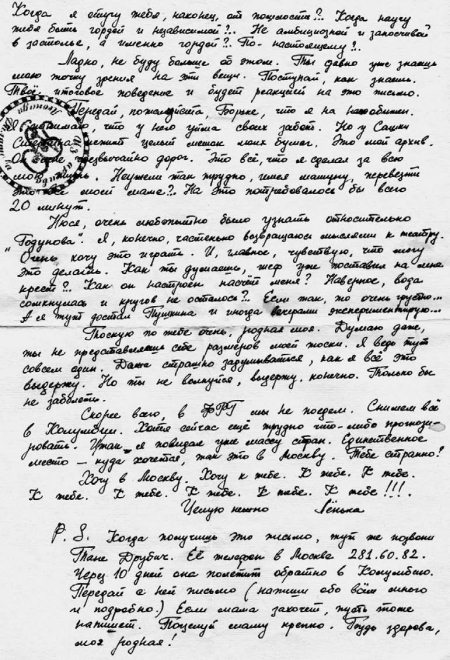 Когда я отучу тебя, наконец, от пошлости?.. Когда научу
тебя быть гордой и независимой?.. Не амбициозной и заносчивой
в застолье, а именно гордой?.. По-настоящему?..
Ладно, не буду больше об этом. Ты давно уже знаешь
мою точку зрения на эти вещи. Поступай, как знаешь.
Твоё итоговое поведение и будет реакцией на это письмо.
Передай, пожалуйста, Борьке, что я на него обижен.
Я понимаю, что у него уйма своих забот. Но у Сашки
лежит целый мешок моих бумаг. Это мой архив.
чрезвычайно дорог. Это всё, что я сделал за всю
мою жизнь. Неужели так трудно, имея машину, перевезти
это всё моей маме?.. На это потребовалось бы всего
20 минут.
Нюся, очень любопытно было узнать относительно
"Годунова". Я, конечно, частенько возвращаюсь мыслями к театру.
Очень хочу это играть. И, главное, чувствую, что могу
это делать. Как ты думаешь, шеф уже поставил на мне
крест?.. Как он настроен насчёт меня? Наверное, вода
сомкнулась и кругов не осталось?.. Если так, то очень грустно...
А я тут достал Пушкина и иногда вечерами экспериментирую...
Тоскую по тебе очень, родная моя. Думаю даже,
ты не представляешь себе размеров моей тоски. Я ведь тут
совсем один. Даже страшно задумываться, как я всё это
выдержу. Но ты не волнуйся, выдержу, конечно. Только бы
не заболеть.
Скорее всего, в ФРГ мы не поедем. Снимем всё
в Колумбии. Хотя сейчас ещё трудно что-либо прогнози-
ровать. Итак, я повидал уже массу стран. Единственное
место - куда хочется, так это в Москву. Тебе странно?
Хочу в Москву. Хочу к тебе. К тебе. К тебе.
К тебе. К тебе. К тебе. К тебе. К тебе!!!.
Целую нежно Лёнька.
P.S. Когда получишь это письмо, тут же позвони
Тане Друбич. Её телефон в Москве 281.60.82.
Через 10 дней она полетит обратно в Колумбию.
Передай с ней письмо (напиши обо всём много
и подробно.) Если мама захочет, пусть тоже
напишет. Поцелуй маму крепко. Будь здорова,
моя родная!